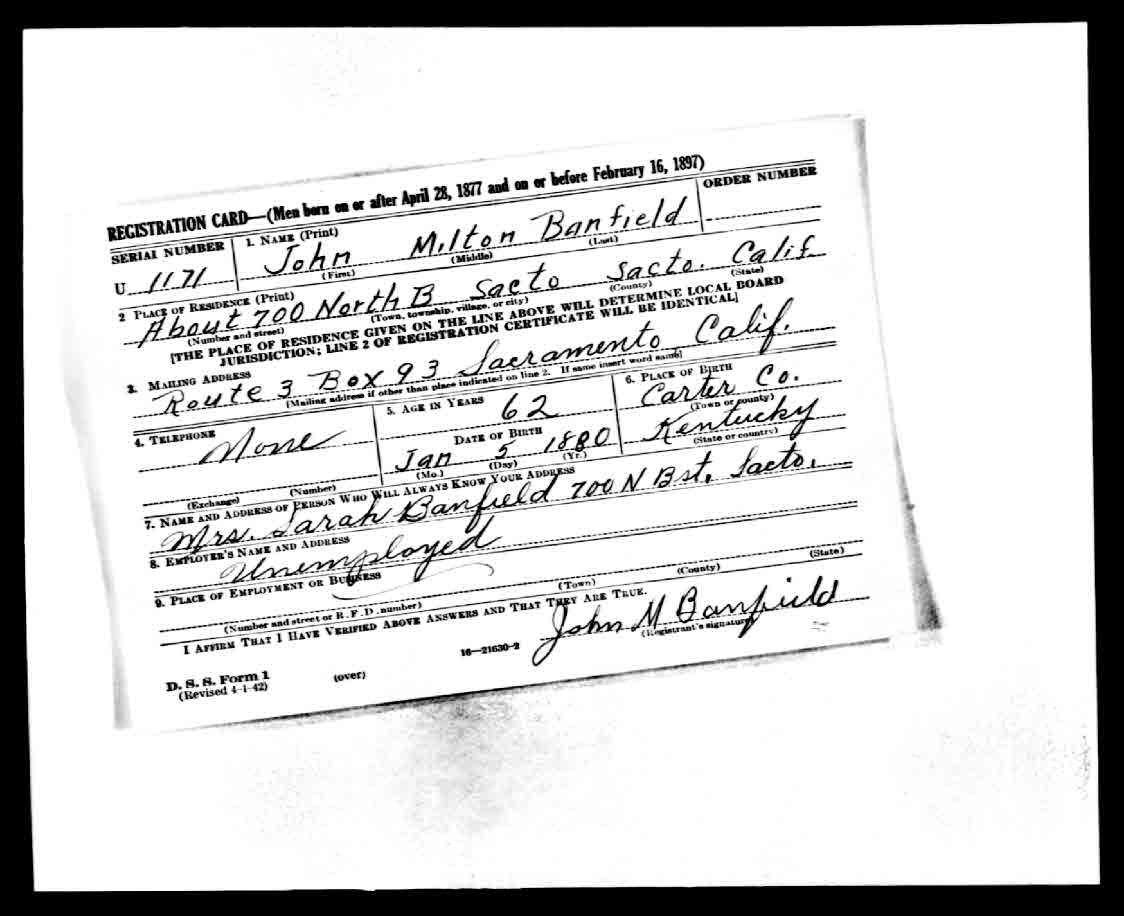 REGISTRATION CARD—(Men born on or after April 28, 1877 and on or before February 16, 1897)
SERIAL NUMBER 1. NAME (Print) ORDER NUMBER
U 1171 John Milton Banfield
(First) (Middle) (Last)
2 PLACE OF RESIDENCE (Print)
About 700 North B Sacto Sacto. Calif.
(Number and street) (Town, township, village, or city) (County) (State)
[THE PLACE OF RESIDENCE GIVEN ON THE LINE ABOVE WILL DETERMINE LOCAL BOARD
JURISDICTION; LINE 2 OF REGISTRATION CERTIFICATE WILL BE IDENTICAL]
3. MAILING ADDRESS
Route 3 Box 93 Sacramento, Calif.
[Mailing address if other than place indicated on line 2. If same insert word same]
4. TELEPHONE 5. AGE IN YEARS 6. PLACE OF BIRTH
None 62 Carter Co.
(Town or county)
DATE OF BIRTH
Jan 5 1880 Kentucky
(Exchange) (Number) (Mo.) (Day) (Yr.) (State or country)
7. NAME AND ADDRESS OF PERSON WHO WILL ALWAYS KNOW YOUR ADDRESS
Mrs. Sarah Banfield 700 N B st. Sacto.
8. EMPLOYER'S NAME AND ADDRESS
Unemployed
9. PLACE OF EMPLOYMENT OR BUSINESS
(Number and street or R. F. D. number) (Town) (County) (State)
I AFFIRM THAT I HAVE VERIFIED ABOVE ANSWERS AND THAT THEY ARE TRUE.
John M Banfield
(Registrant's signature)
D. S. S. Form 1
(Revised 4-1-42) (over) 16—21630-2